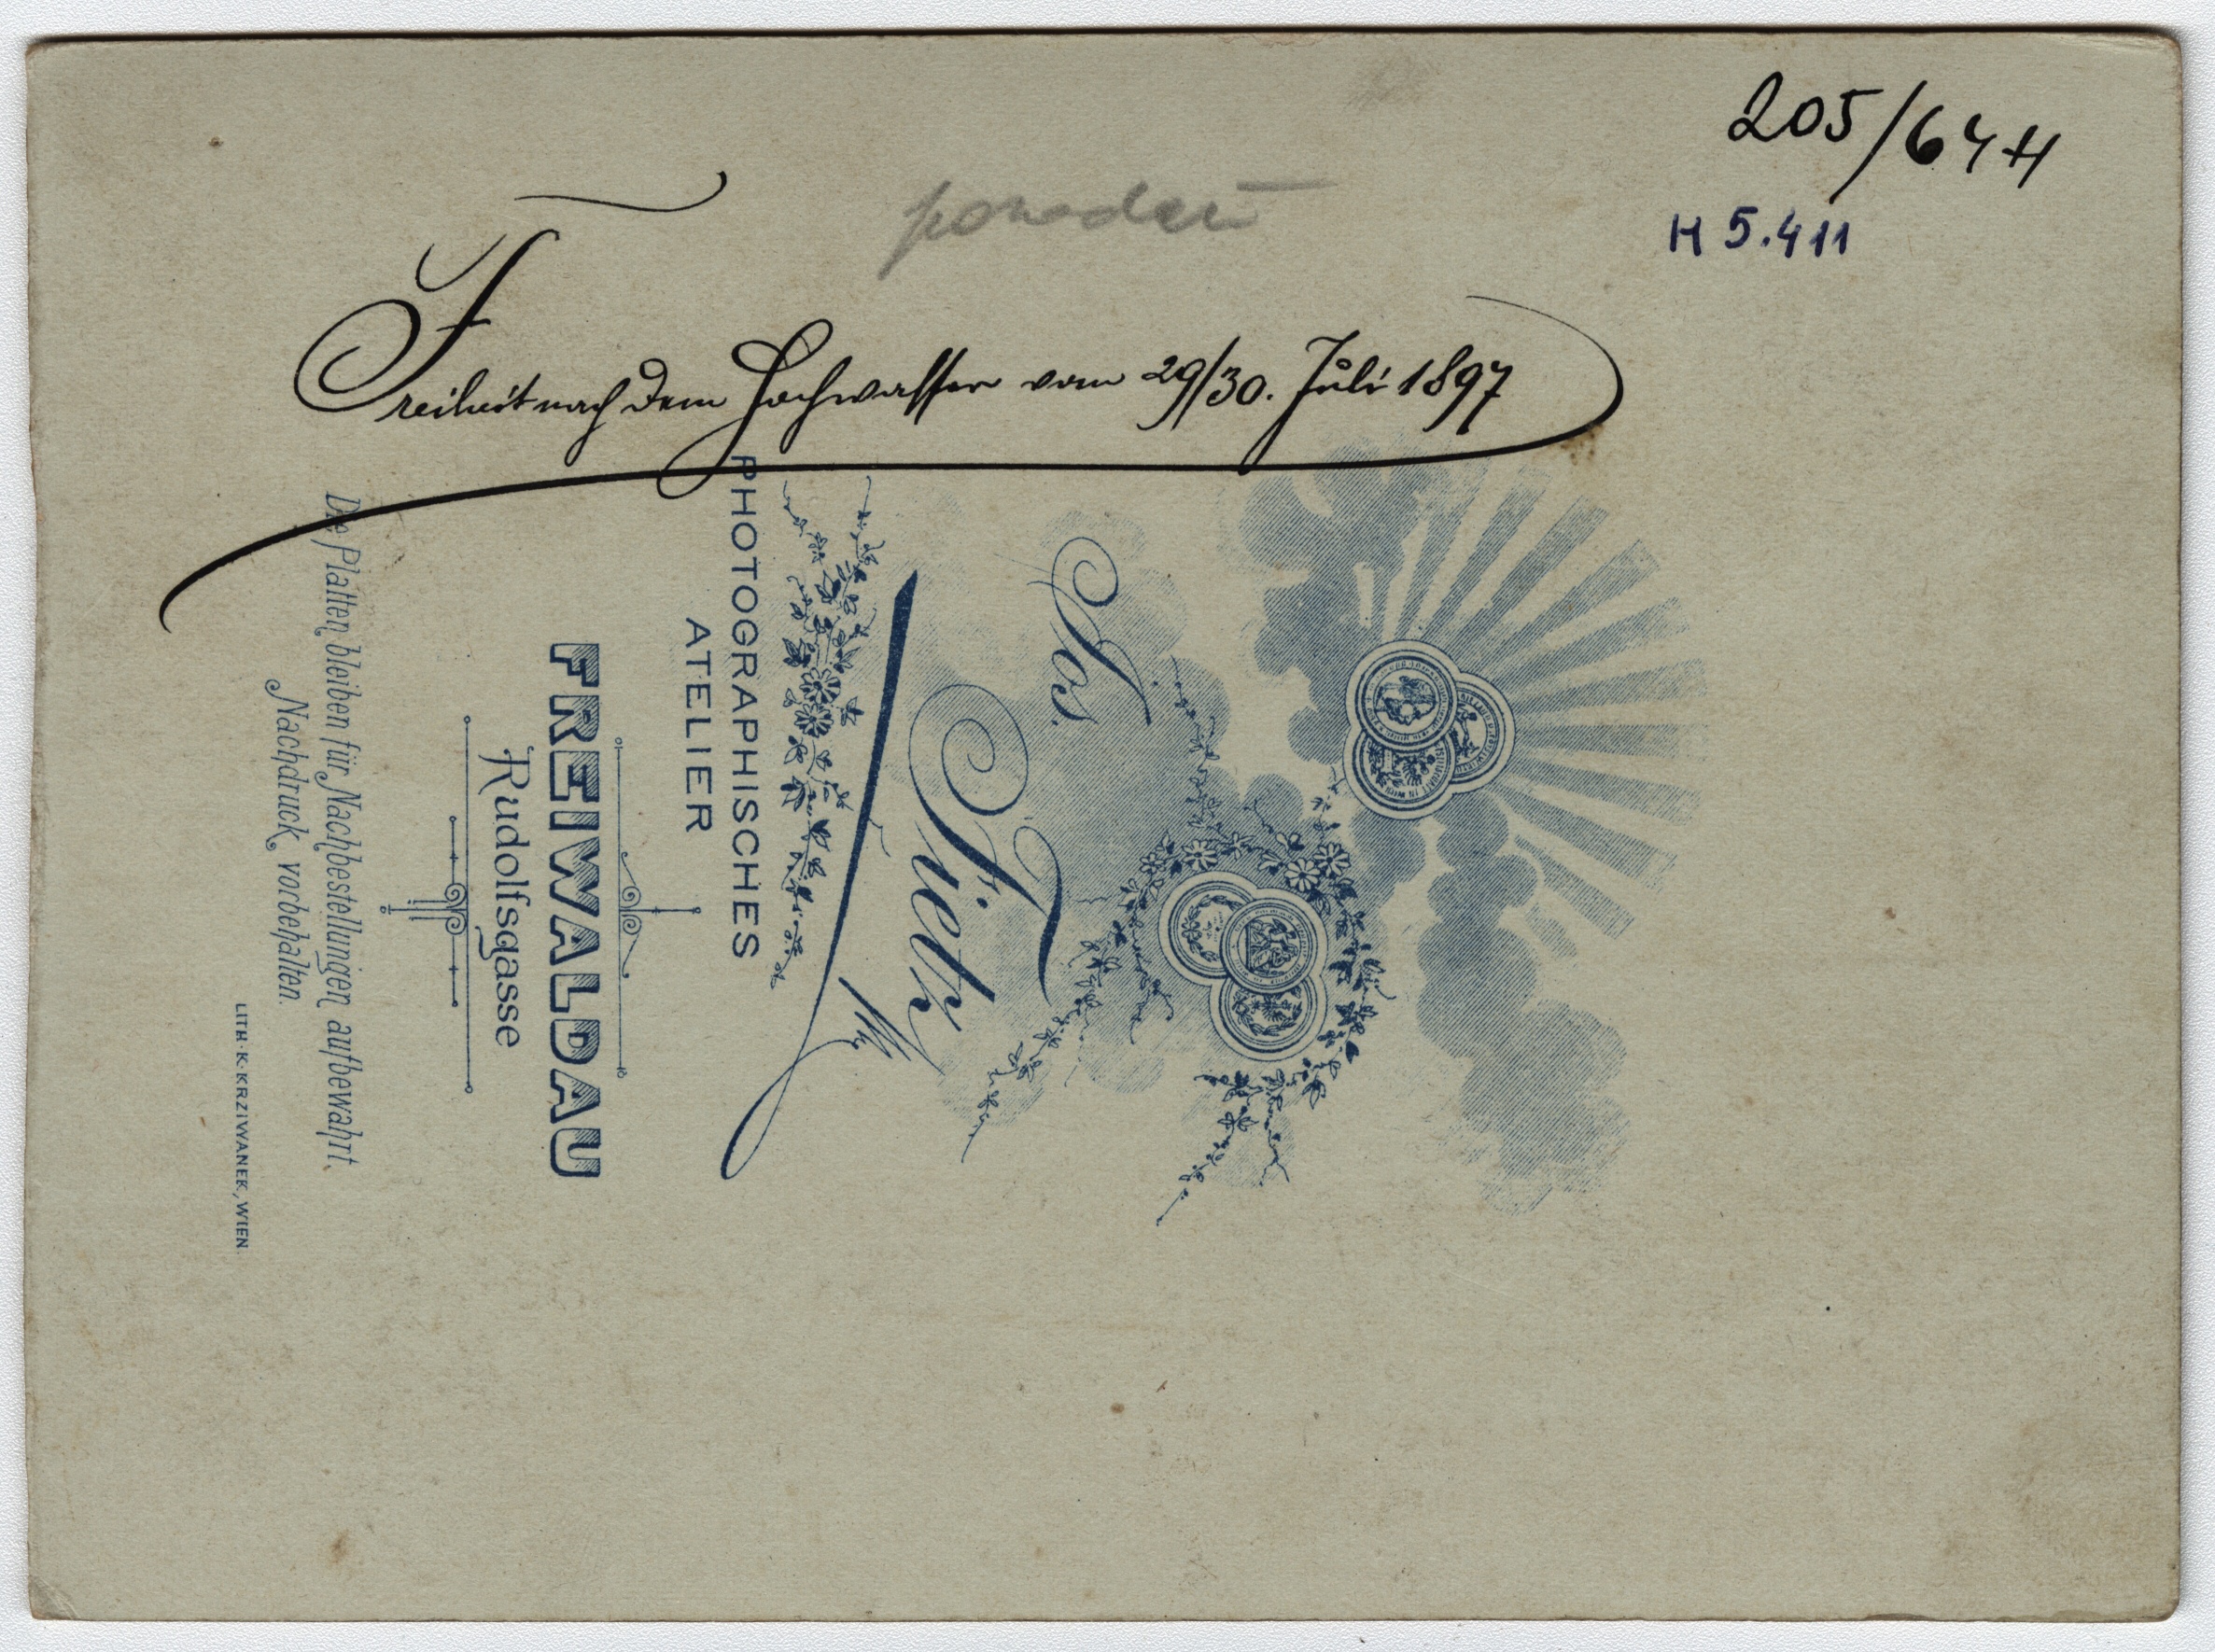 205/64 H
H 5.411
Freiheit nach dem Hochwasser vom 29/30. Juli 1897
Jos. Tietz
PHOTOGRAPHISCHES
ATELIER
FREIWALDAU
Rudolfsgasse
Die Platten bleiben für Nachbestellungen aufbewahrt.
Nachdruck vorbehalten.
LITH. K. KRZIWANEK, WIEN.